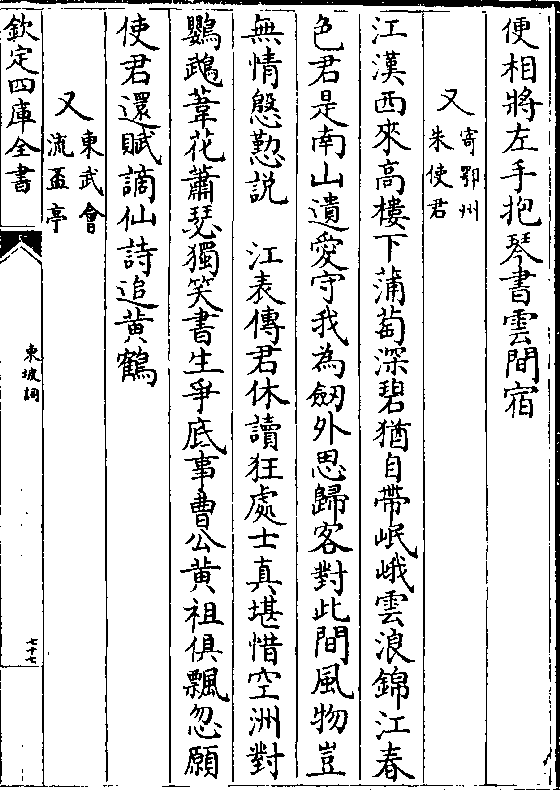 便相將左手抱琴書雲間宿
又寄鄂州朱使君
江漢西來高樓下蒲萄深碧猶自帶岷峨雲浪錦江春
色君是南山遺愛守我為劒外思歸客對此間風物豈
無情慇懃説　江表傳君休讀狂處士真堪惜空洲對
鸚鵡葦花蕭瑟獨笑書生爭底事曹公黄祖俱飄忽願
使君還賦謫仙詩追黄鶴
又東武會流盃亭
欽定四庫全書
東坡詞
七十七